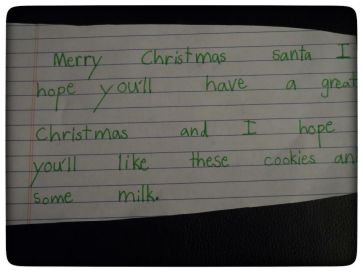 Merry Christmas santa I
hope you'll have a great
Christmas and I hope
you'll like these cookies an
some milk.